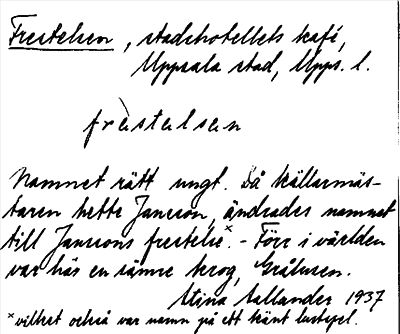 Frestelsen, stadshotellets kafé,
Uppsala stad, Upps. l.
fràstalsan
Namnet rätt ungt. Då källarmäs-
taren hette Jansson, ändrades namnet
till Janssons frestelse.ˣ - Förr i världen
var här en sämre krog, Gråhusen.
Stina Sallander 1937
ˣ vilket också var namn på ett känt lustspel.